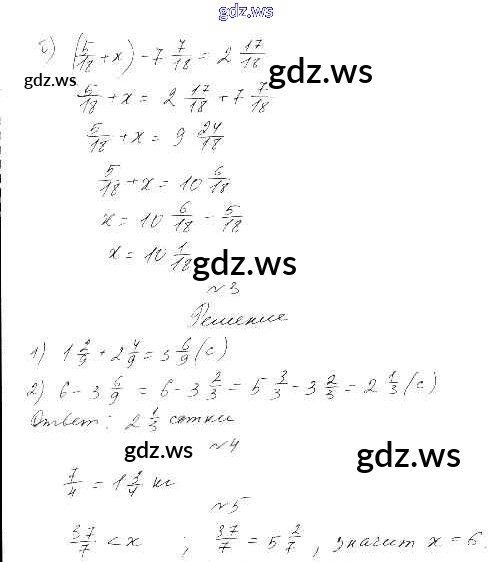 gdz.ws
б) (5/18 + x) - 7 7/18 = 2 17/18
gdz.ws
gdz.ws
5/18 + x = 2 17/18 + 7 7/18
5/18 + x = 9 24/18
5/18 + x = 10 6/18
x = 10 6/18 - 5/18
x = 10 1/18
gdz.ws
№3
Решение
1) 1 2/9 + 2 4/9 = 3 6/9 (с)
2) 6 - 3 6/9 = 6 - 3 2/3 = 5 3/3 - 3 2/3 = 2 1/3 (с)
Ответ: 2 1/3 сотки
№4
gdz.ws
gdz.ws
7/4 = 1 3/4 кг
№5
37/7 < x ; 37/7 = 5 2/7, значит x = 6.